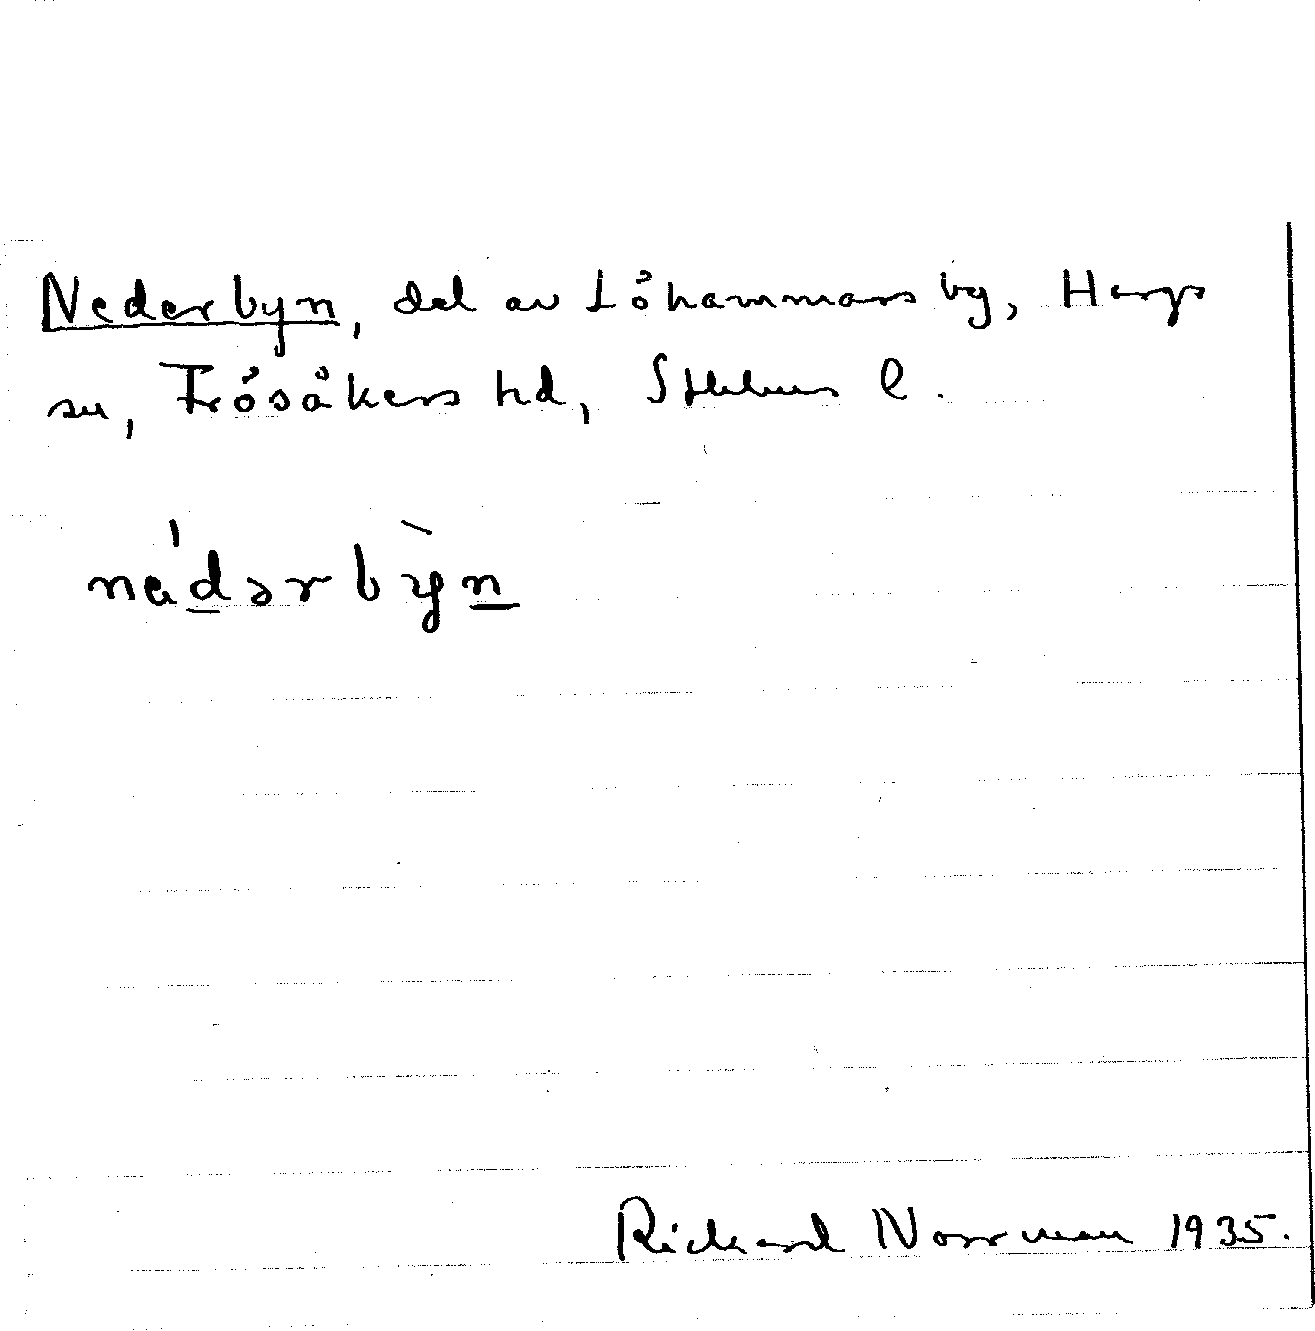 Nederbyn, del av Löhammars by, Hargs
sn, Frösåkers hd, Sthlms l.
nédərbỳn
Rickard Norrman 1935.